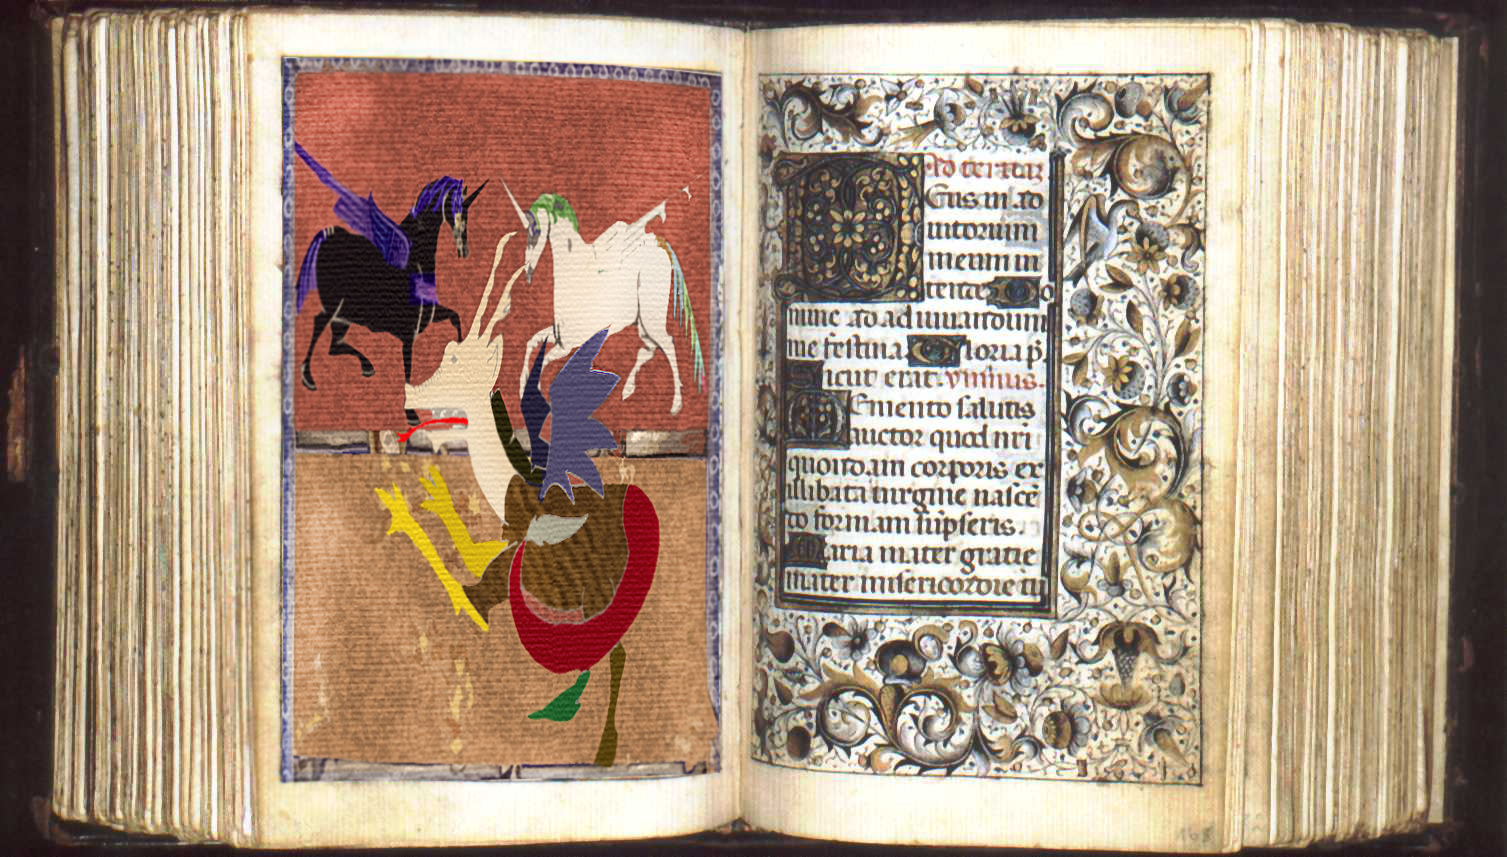 Ad tertiã
Deus in ad
iutorium
meum in
tende Do
mine ad adiuuandum
me festina Gloria p.
Sicut erat. ymnus.
Memento salutis
auctor quod nr̃i
quondam corporis ex
illibata uirgine nascẽ
do formam sũpseris.
Maria mater gratie
mater misericordie tu
168